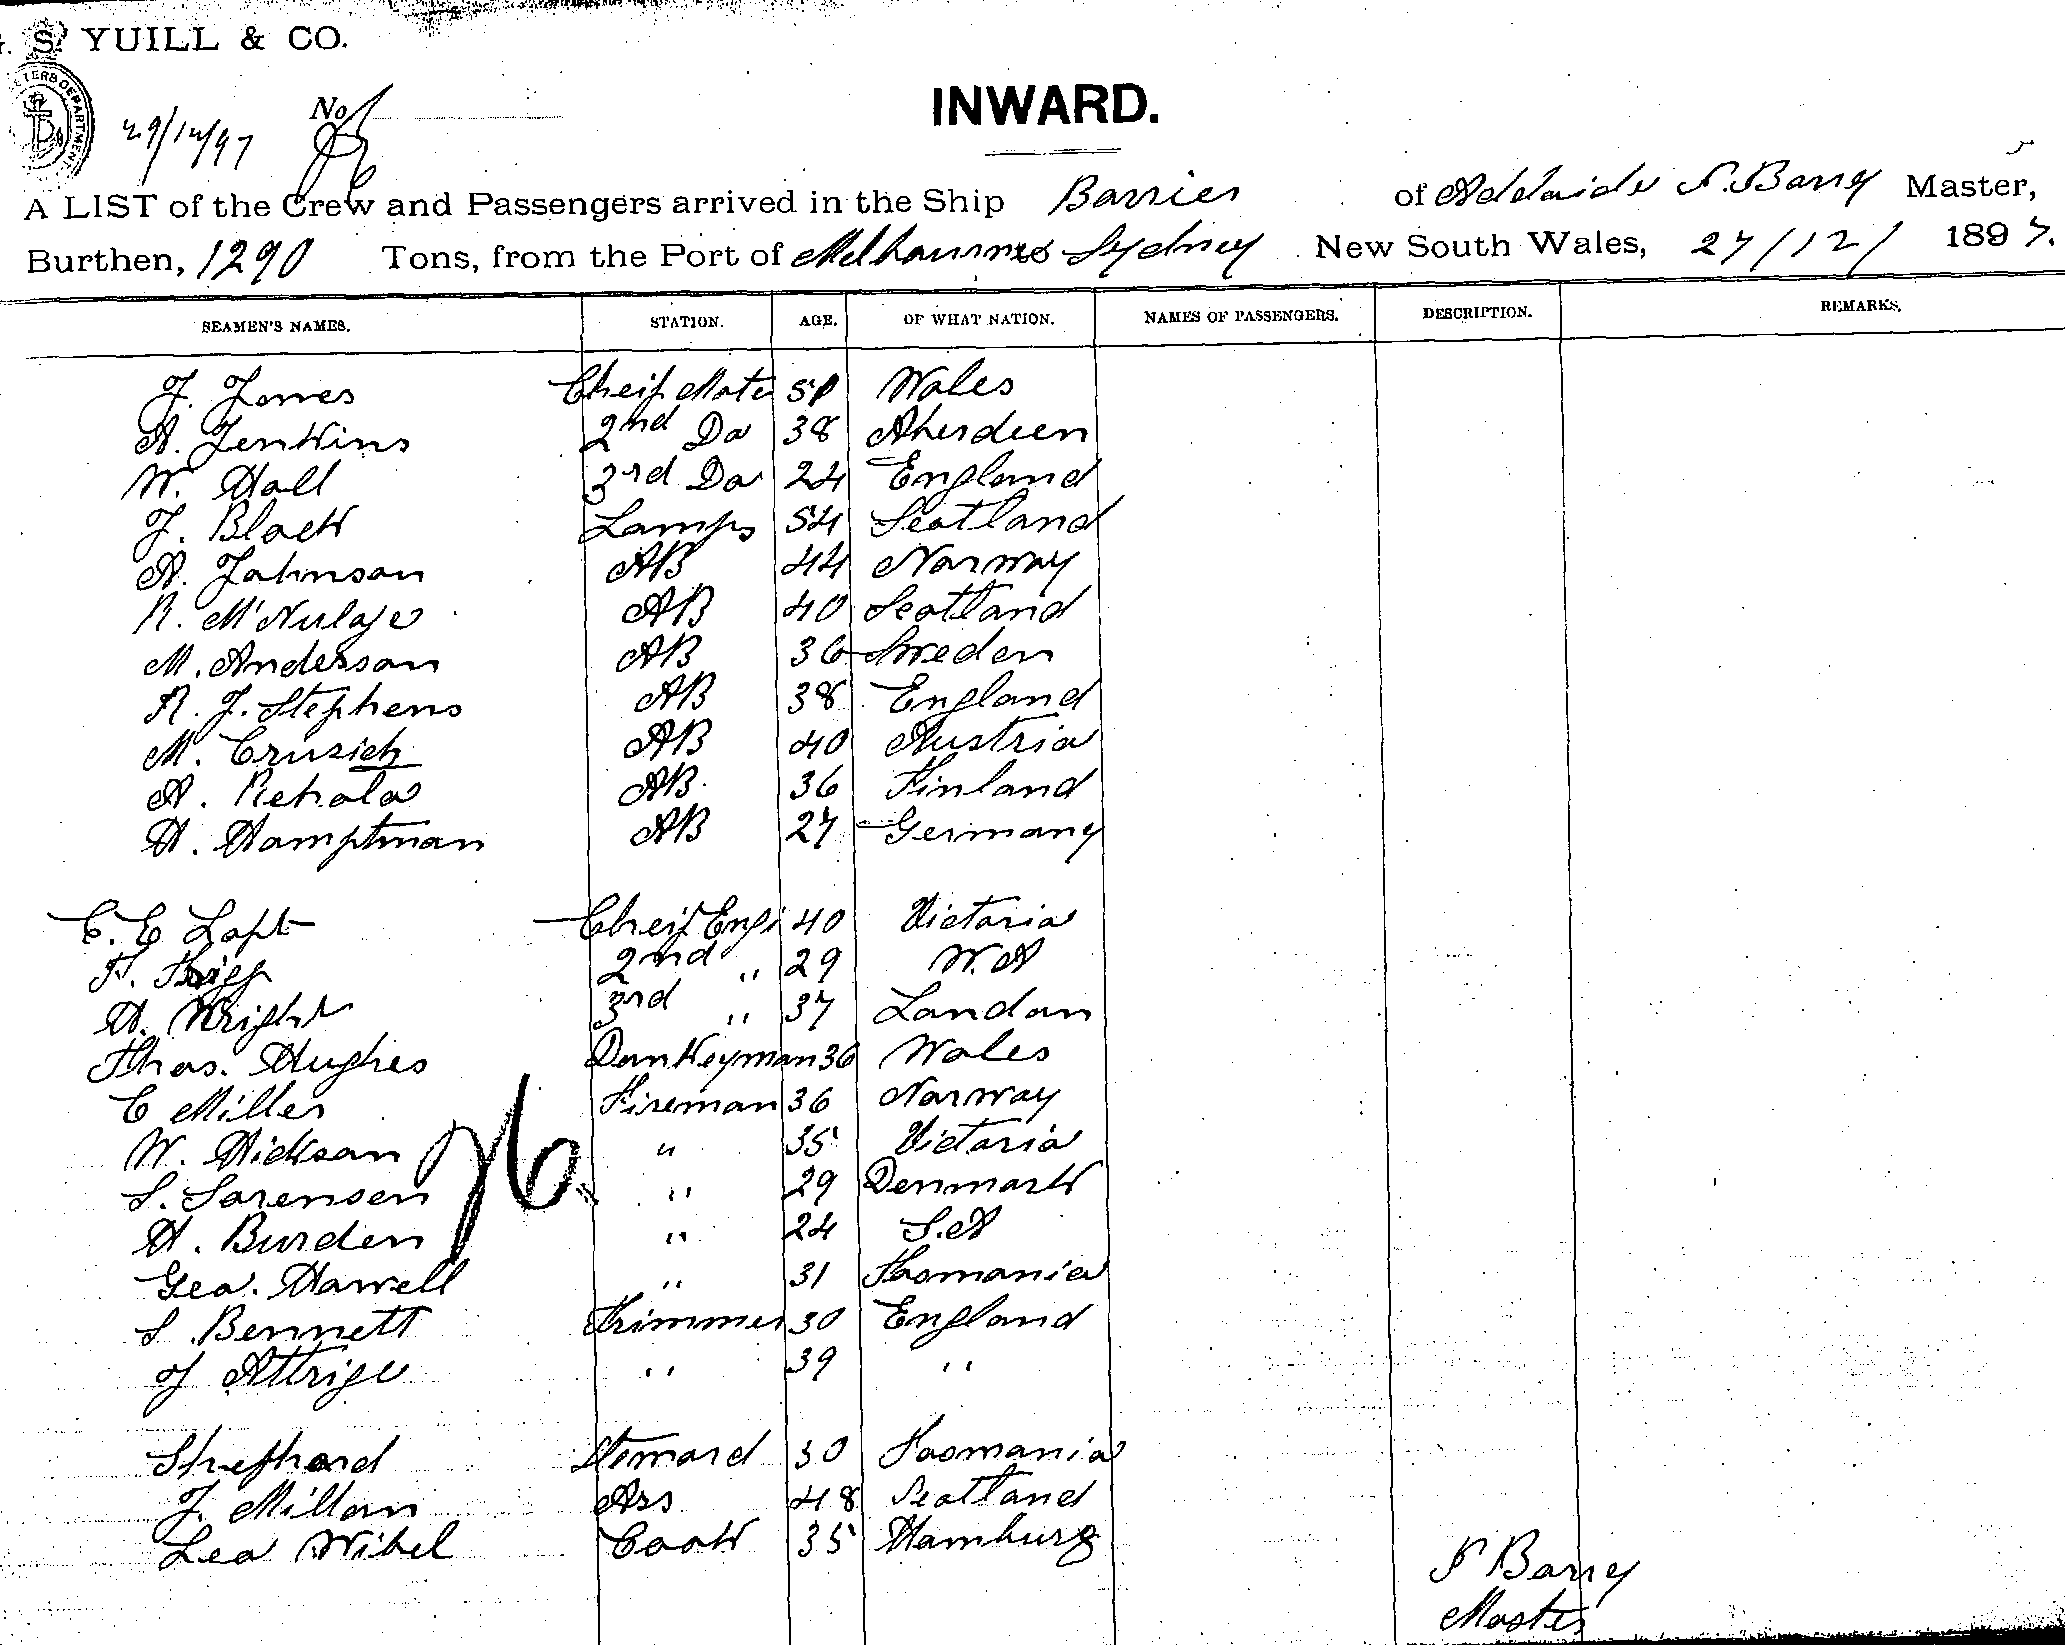 G. S. YUILL & CO.
INWARD.
29/12/97 No
A LIST of the Crew and Passengers arrived in the Ship Barrier of Adelaide P. Barry Master,
Burthen, 1290 Tons, from the Port of Melbourne to Sydney New South Wales, 27/12/ 1897.
SEAMEN'S NAMES. STATION. AGE. OF WHAT NATION. NAMES OF PASSENGERS. DESCRIPTION. REMARKS.
J. Jones Cheif Mate Wales
A. Jenkins 2nd Do 38 Aberdeen
W. Hall 3rd Do 24 England
J. Black Lamps 54 Scotland
A. Johnson AB 44 Norway
R. AB 40 Scotland
M. Anderson AB 36 Sweden
R. J. Stephens AB 38 England
M. Crusich AB 40 Austria
A. Rehola AB. 36 Finland
H. Hamptman AB 27 Germany
C. E Loft Cheif Engi 40 Victoria
F. 2nd " 29 W. A
H. Wright 3rd " 37 London
Thos. Hughes Donkeyman 36 Wales
C Miller Fireman 36 Norway
W. Hickson " 35 Victoria
S. Sorensen " 29 Denmark
H. Burden " 24 S. A
Geo. Howell " 31 Tasmania
S. Bennett Trimmer 30 England
J Attrige " 39 "
Shephard Steward 30 Tasmania
J. Millan Ass 48 Scotland
Leo Wibel Cook 35 Hamburg
P Barry
Master